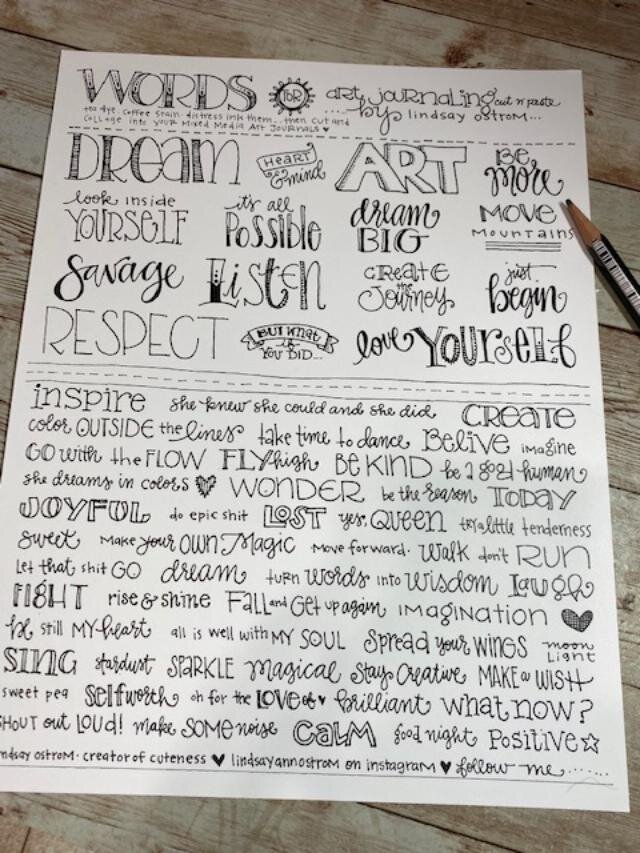 WORDS FOR art journaling cut n' paste
tea dye. coffee stain. distress ink them... then cut and
collage into your mixed media art journals ♥
... by lindsay ostrom...
DREAM HEART & mind ART BE more
look inside YOURSELF it's all Possible dream BIG MOVE MOUNTAINS
Savage Listen CREATE the Journey just begin
RESPECT BUT WHAT IF YOU DID... love YOURSELF
inspire she knew she could and she did CREATE
color OUTSIDE the lines take time to dance Belive imagine
GO with the FLOW FLY high BE KIND be a good human
she dreams in colors ♥ WONDER be the reason TODAY
JOYFUL do epic shit LOST yes, QUEEN try a little tenderness
sweet make your OWN Magic move forward. walk don't RUN
let that shit GO dream turn words into wisdom laugh
FIGHT rise & shine Fall and Get up again IMAGINATION ♥
be still MY heart all is well with MY SOUL Spread your WINGS moon Light
SING stardust SPARKLE magical Stay Creative MAKE a WISH
sweet pea Selfworth oh for the LOVE of ♥ brilliant what now?
SHOUT out LOUD! make SOME noise CALM good night Positive ☆
ndsay ostrom · creator of cuteness ♥ lindsayannostrom on instagram ♥ follow me......